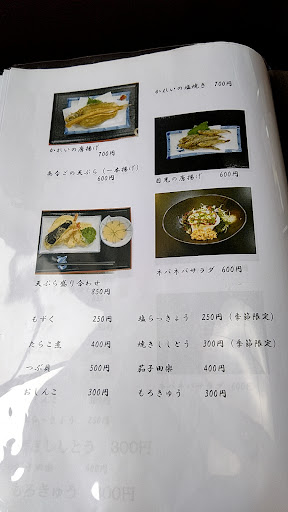 かれいの塩焼き 700円
かれいの唐揚げ
700円
あなごの天ぷら(一本揚げ)
600円
目光の唐揚げ
400円
天ぷら盛り合わせ
850円
ネバネバサラダ 600円
もずく 250円
塩らっきょう 250円(季節限定)
たらこ煮 400円
焼きししとう 300円(季節限定)
つぶ貝 500円
茄子田楽 400円
おしんこ 300円
もろきゅう 300円
ししとう 300円
もろきゅう 300円